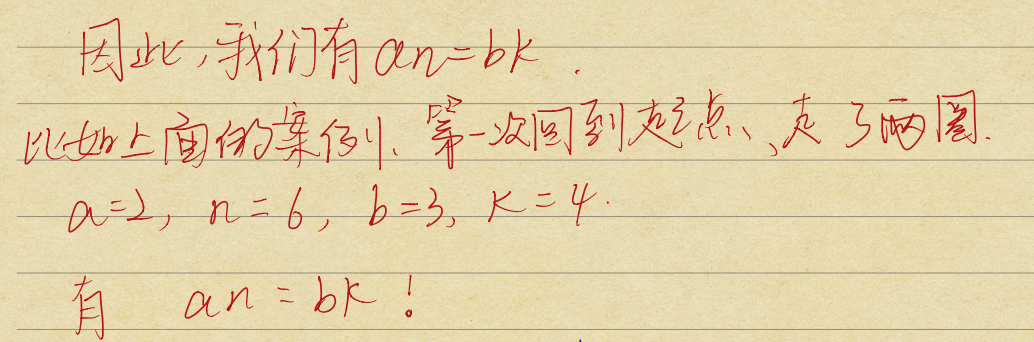 因此,我们有an=bk.
比如上面的案例、第一次回到起点、走了两圈.
a=2, n=6, b=3, k=4.
有 an=bk!